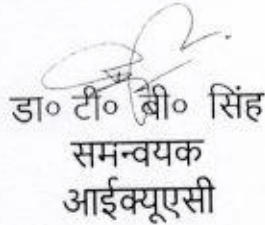 डा० टी० बी० सिंह
समन्वयक
आईक्यूएसी